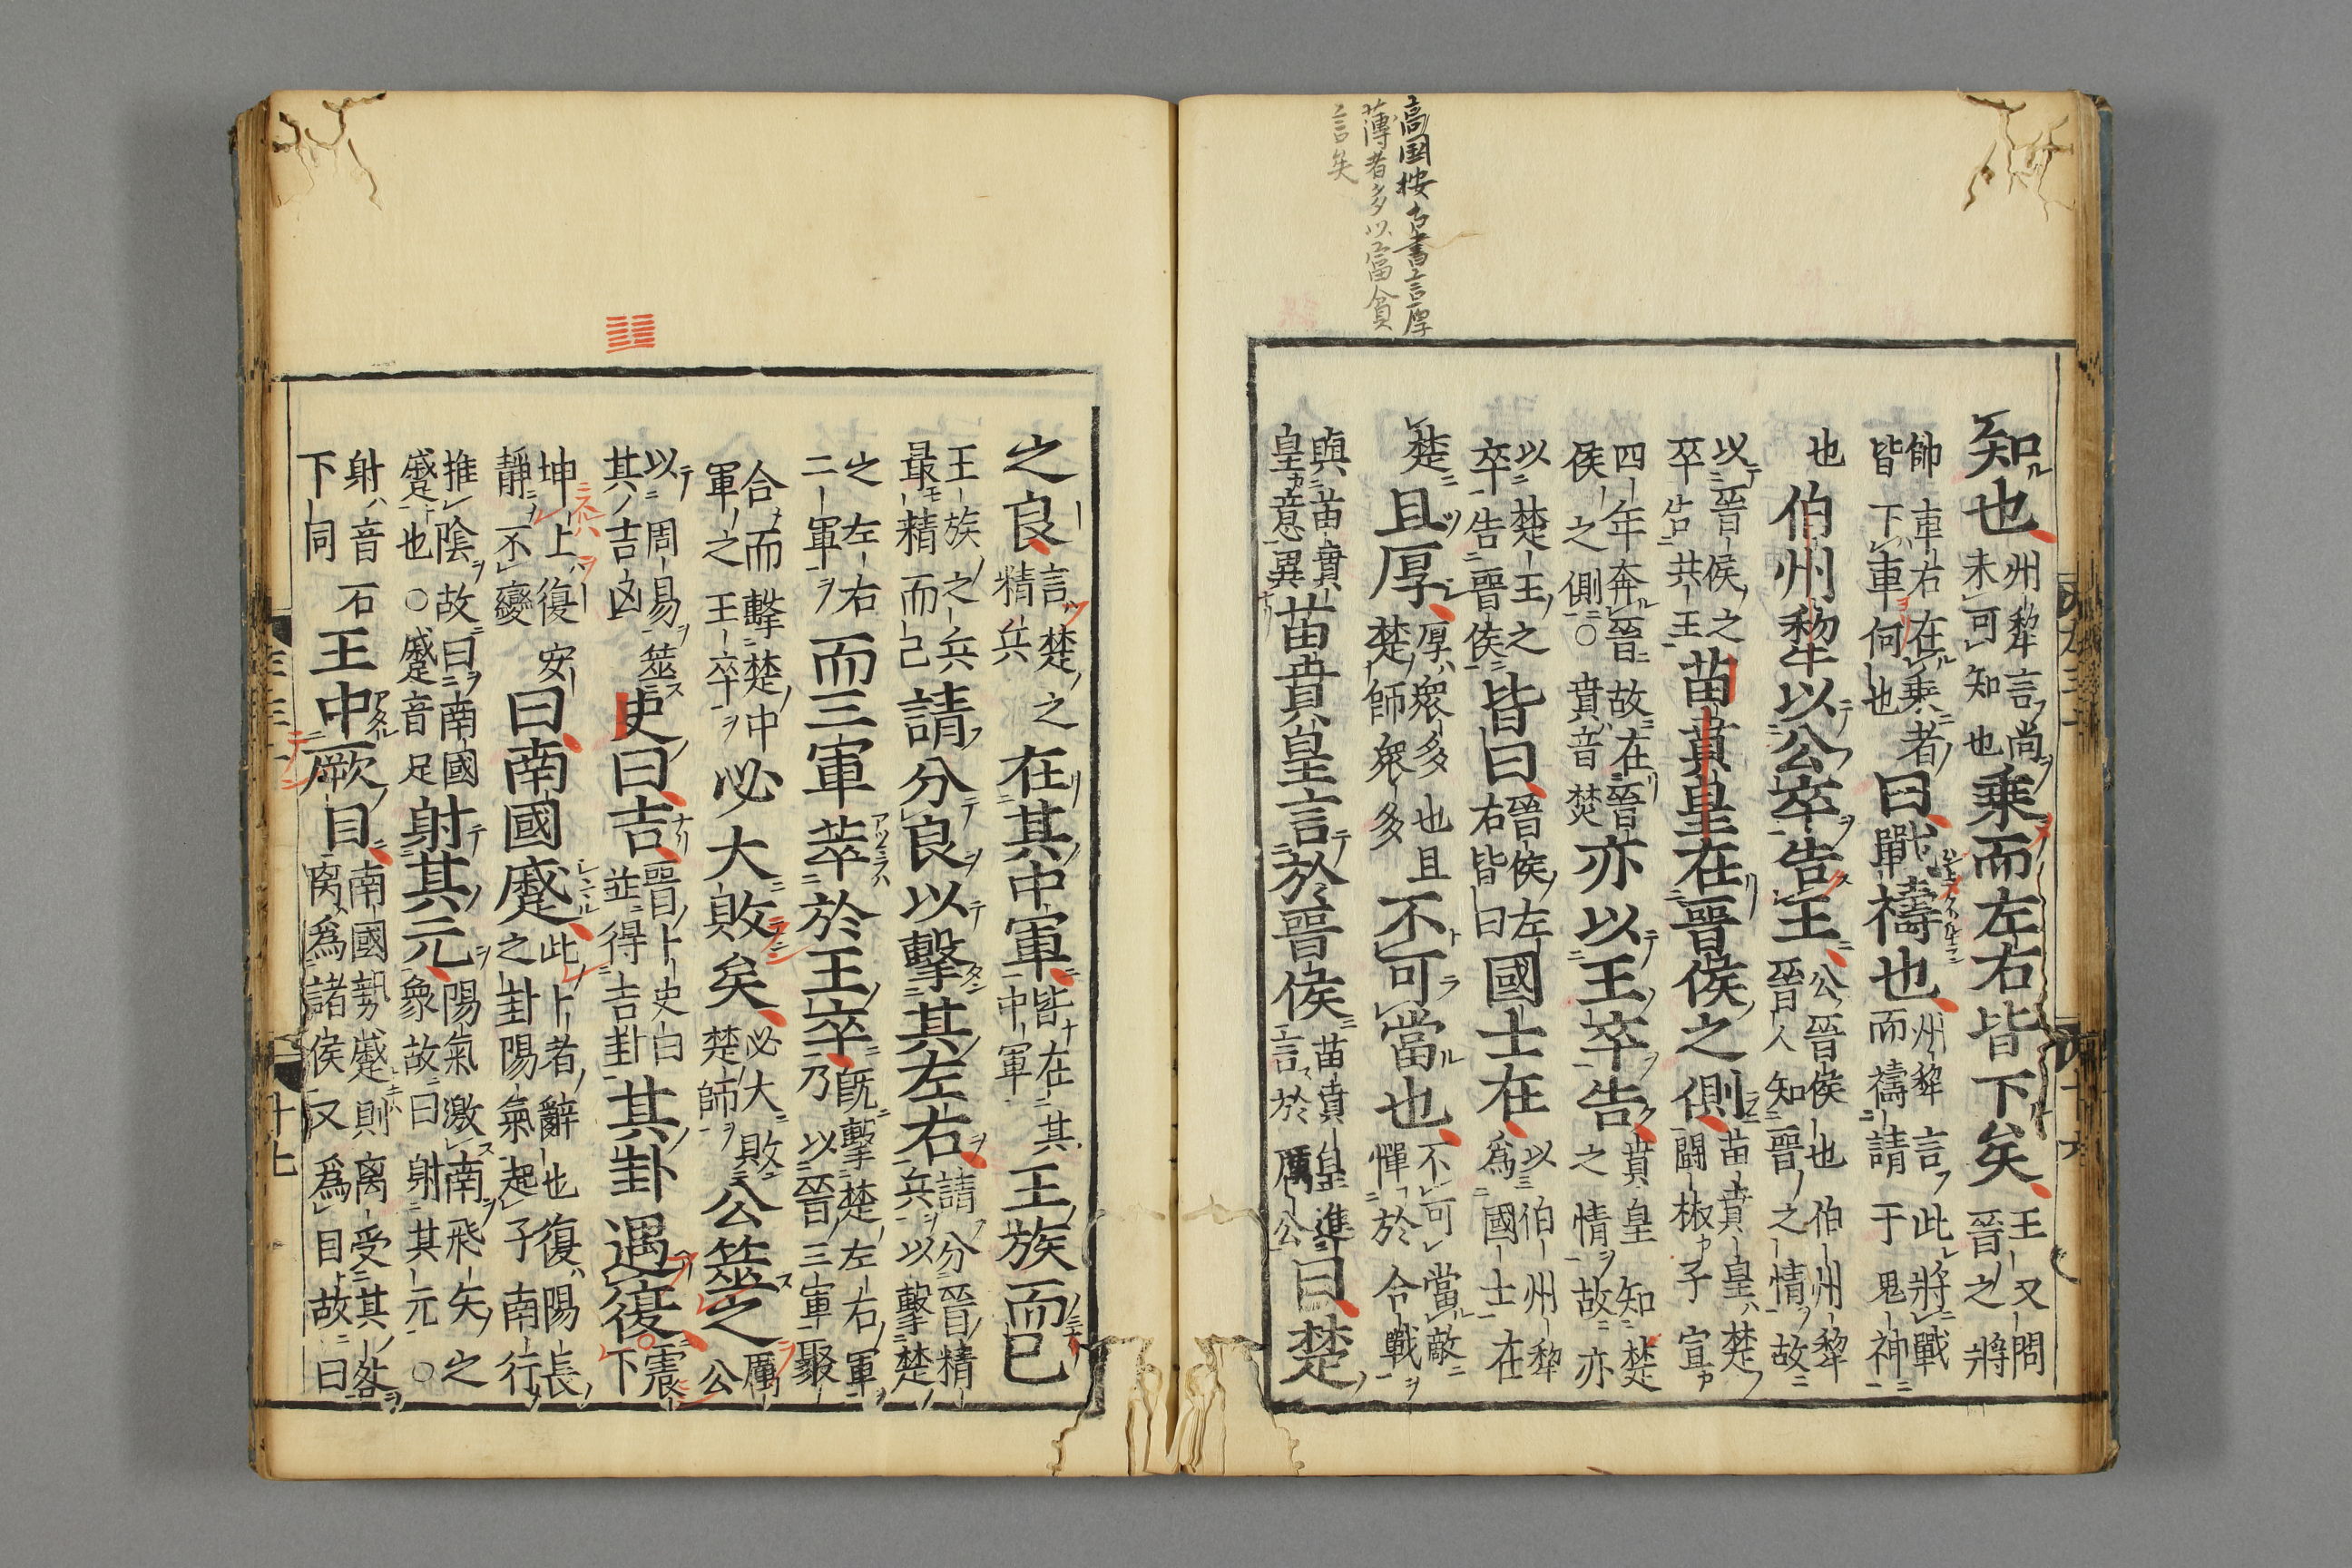 高国按古書言厚
薄者多以富貧
言矣
知也州犂言尚未可知也乘而左右皆下矣王又問晉之將
帥車右在乘者皆下車何也曰戰禱也州犂言此將戰而禱請于鬼神
也伯州犂以公卒告王公晉侯也伯州犂晉人知晉之情故
以晉侯之卒告共王苗賁皇在晉侯之側苗賁皇楚鬪椒子宣
四年奔晉故在晉侯之側○賁音焚亦以王卒告賁皇知楚之情故亦
以楚王之卒告晉侯皆曰晉侯左右皆曰國士在以伯州犂爲國士在
楚且厚厚衆多也且楚師衆多不可當也不可當敵憚於合戰
與苗賁皇意異苗賁皇言於晉侯苗賁皇進言於厲公曰楚
之良言楚之精兵在其中軍皆在其中軍王族而已
王族之兵最精而已請分良以擊其左右請分晉精兵以擊楚
之左右二軍而三軍萃於王卒既擊楚左右軍乃以晉三軍聚
合而擊楚中軍之王卒必大敗矣必大敗楚師公筮之厲公
以周易筮其吉凶史曰吉晉卜史白筮得吉卦其卦遇復震下
坤上復安靜不變曰南國蹙此卜者辭也復陽長之卦陽氣起子南行
推陰故曰南國蹙也○蹙音足射其元陽氣激南飛矢之象故曰射其元○
射音石下同王中厥目南國勢蹙則离受其咎离爲諸侯又爲目故曰